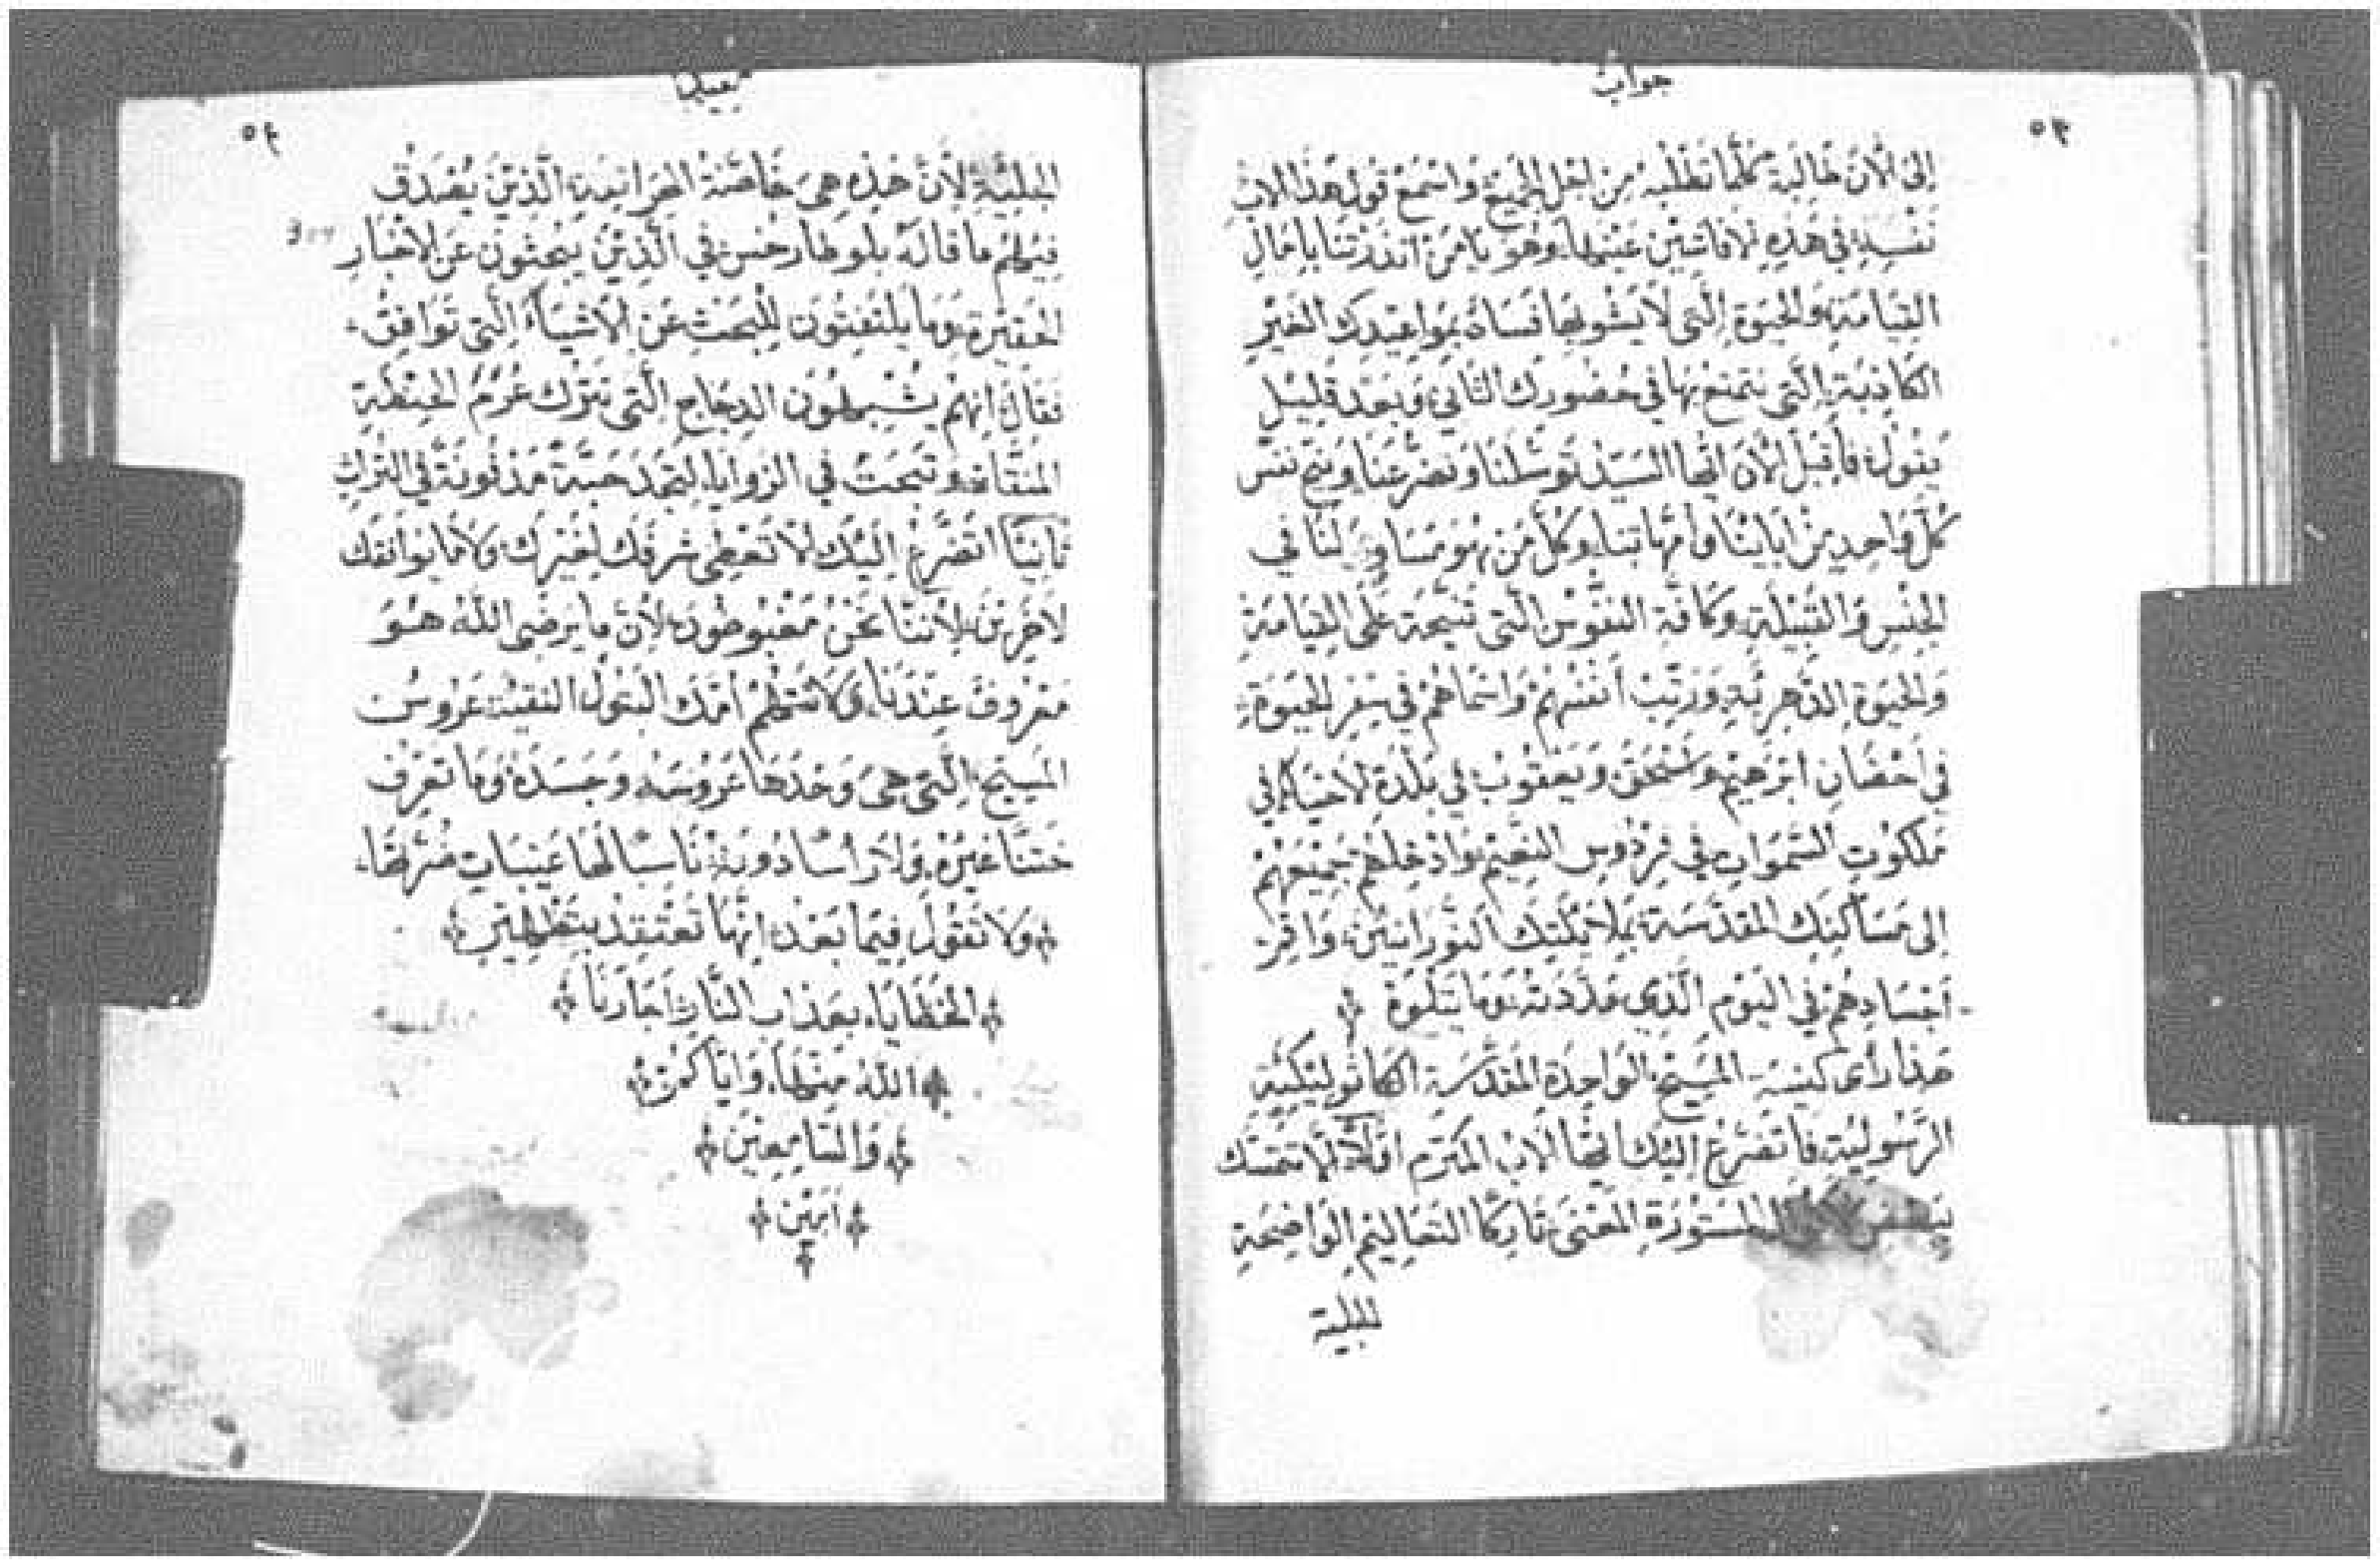 جواب
٥٣
إِلَى الْآنَ طَالِبَة كُلَّمَا تَطْلُبُهُ مِنْ اجْلِ الْجَمِيعْ وَاسْتَمِعْ قَوْل هَذَا الاب
نَفْسِهِ فِي هَذِهِ عَيْنِهَا وَهُوَ يَا مَنْ انذَرْتَنَا بِامَالِ
القِيَامَةِ وَالْحَيَوةِ الَّتِي لَا يَشُوبُهَا فَسَادٌ بِمَوَاعِيدِكَ الغَيْرِ
الكَاذِبَةِ الَّتِي نتمتع بِهَا فِي حُضُورِكَ الثَّانِي وَبَعْدَ قَلِيْل
يَقُولْ فَأَقْبَلِ الْآنَ ايُّهَا السَيّدْ تَوسُّلنَا وَتَضَرُّعَنَا وَنيّح نفس
كُلّ وَاحِدٍ مِنْ ابَايْنَا وَأُمَّهَاتِنَا وَكُلّ مَنْ هُوَ مُسَاوِي لَنَا فِي
الجِنْسِ وَالقَبِيْلَةِ وَكَافَّة النفُوْسِ الَّتِي تنيحَة عَلَى القِيَامَةِ
وَالْحَيَوةِ الدَّهرِيَّةِ وَرَتِّبْ أَنفُسَهُمْ وَاسْمَاهُمْ فِي سِفْرِ الْحَيَوةِ
فِي احْضَانِ ابْرَهِيْم وَاسْحَقْ وَيَعقُوبْ فِي بَلْدَةِ الاحْيَاءِ فِي
مَلَكُوْتِ السَّمَوَاتِ فِي فِرْدَوسِ النعِيْم وَادْخِلهُمْ جَمِيْعَهُمْ
إِلى مَسَاكِنِكَ المقَدَّسَة بِمَلَايِكَتِكَ النوْرَانِيينْ وَاقِمْ
أَجْسَادِهُمْ فِي اليَوْم الَّذِي حَدَّدتَهُ وَمَا يَتلُوهْ
هَذَا رَأي كنيسَة المَسِيْح الوَاحِدَة المقَدَّسَة الكَاثُولِيْكِيَّةِ
الرَّسُولِيَّةِ فَاتَضَرَّعُ إِلَيْكَ ايُّهَا الْأب المكَرَّم اوَّلاً ألَّا تتمَسَّك
المَسْتُوْرَةِ المَعْنَى تَارِكًا التَعَالِيْمِ الوَاضِحَةِ
الجلية
٥٤
الجَلِيَّةِ لِأَنَّ هَذِهِ هِيَ خَاصَّة الهَرَاتِقَةِ الَّذِيْنَ يُصَدقُ
فِيْهِمْ مَا قَالَهُ بلوطارخُس فِي الَّذِيْنَ يَبْحَثُونَ عَنِ الْأَخْبَارِ
الحَقِيْرَةِ وَمَا يَلتَفِتُونَ لِلبَحْثِ عَنْ الْأَشْيَاءِ الَّتِي تَوَافِقْ
فَقَالَ إِنهُمْ يُشْبِهُونَ الدجَاج الَّتِي تترُك عُرَمُ الحِنْطَةِ
المُنَقَّاةِ وَتبْحَثُ فِي الزوَايَا لِتَجْدَ حَبَّةً مَدْفُونَةً فِي التُرَابِ
ثَانِيًا اتَضَرَّعُ إِلَيْكَ لَا تَعْطِي شرفَكَ لِغَيْرِكَ وَلَا مَا يُوَافِقَكَ
لآخَرِيْنَ لِأَنَنَا نَحْنُ مَغْبُوطُونَ لأنَّ مَا يَرْضِي اللّه هُوَ
مَعْرُوفٌ عِنْدَنَا وَلَا تتهِمْ أُمَّكَ البَتُولْ النَقِيَّة عَرُوسُ
المَسِيْحِ الَّتِي هِيَ وَحْدَهَا عَرُوسَهُ وَجَسَدَهُ وَمَا تعْرِف
خَتَنًا غَيْرَهُ وَلَا رَأسًا دُونَهُ نَاسِبًا لَهَا
وَلَا تَقُوْلُ فِيْمَا بَعْدُ إِنَّهَا تَعْتَقِدْ بِتَطْهِيْرِ
الخَطَايَا بِعَذَابِ النَّارِ أَجَارَنَا
اللّه مِنْهَا وَايَّاكُمْ
وَالسَّامِعِيْنَ
آمِيْن